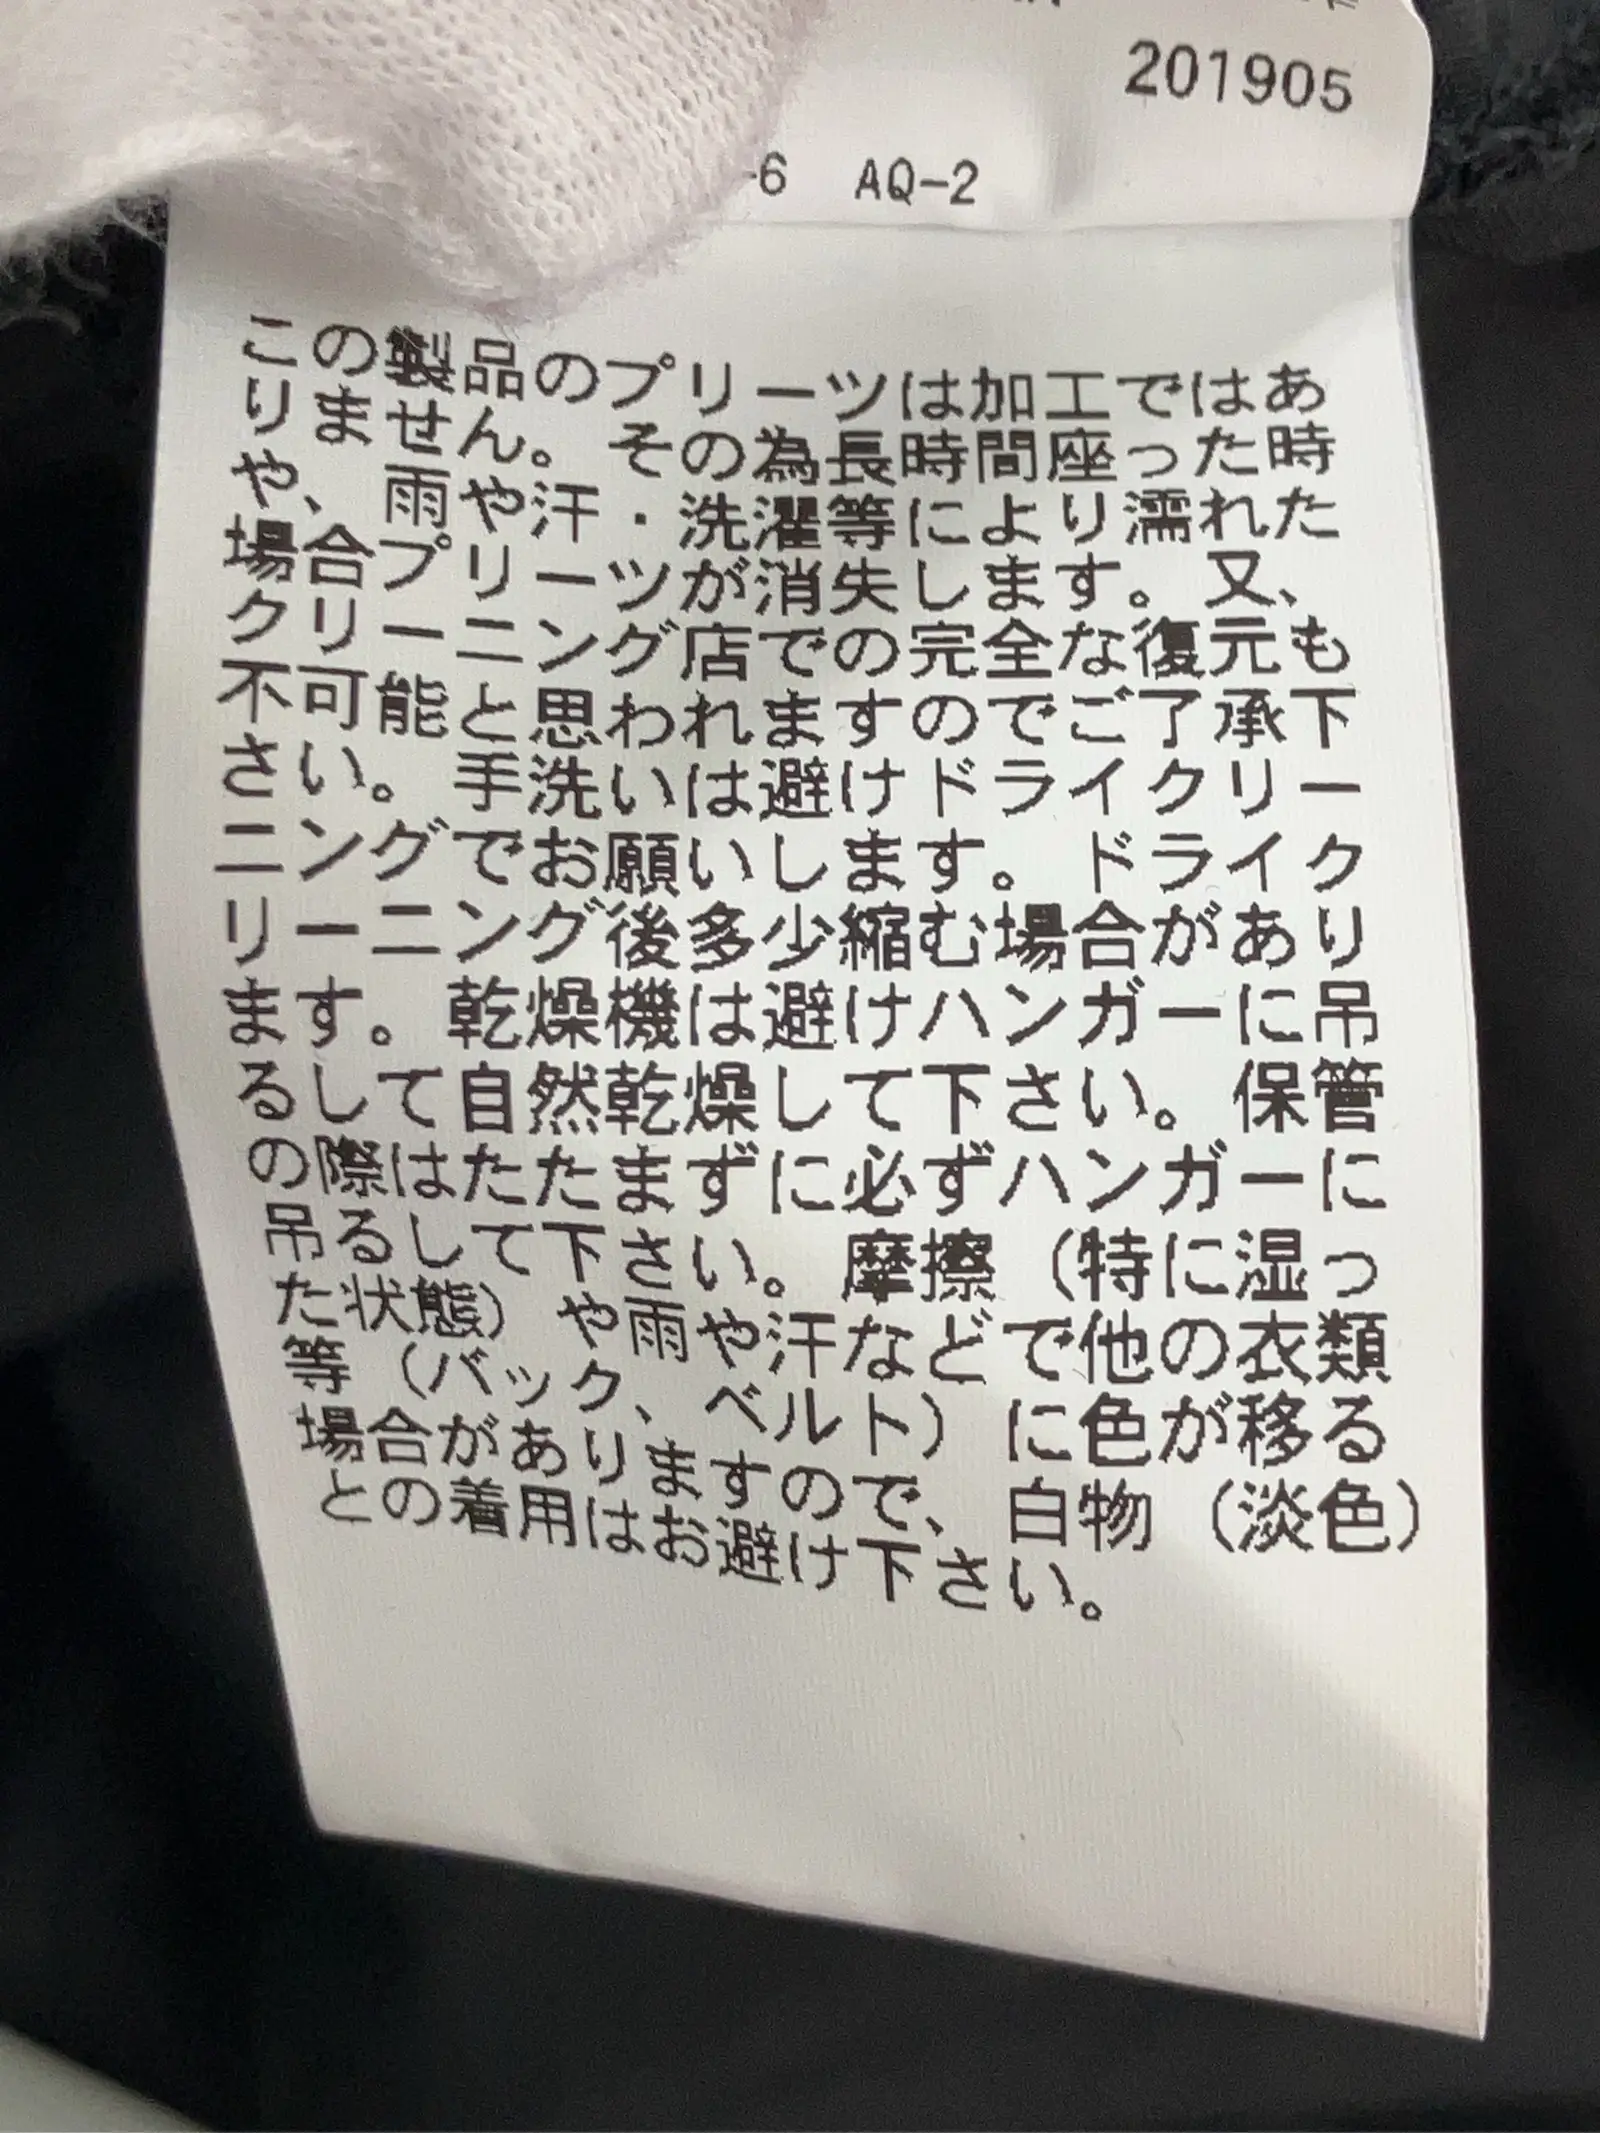 201905
-6 AQ-2
この製品のプリーツは加工ではあ
りません。その為長時間座った時
や、雨や汗・洗濯等により濡れた
場合プリーツが消失します。又、
クリーニング店での完全な復元も
不可能と思われますのでご了承下
さい。手洗いは避けドライクリー
ニングでお願いします。ドライク
リーニング後多少縮む場合があり
ます。乾燥機は避けハンガーに吊
るして自然乾燥して下さい。保管
の際はたたまずに必ずハンガーに
吊るして下さい。摩擦（特に湿っ
た状態）や雨や汗などで他の衣類
等（バック、ベルト）に色が移る
場合がありますので、白物（淡色）
との着用はお避け下さい。